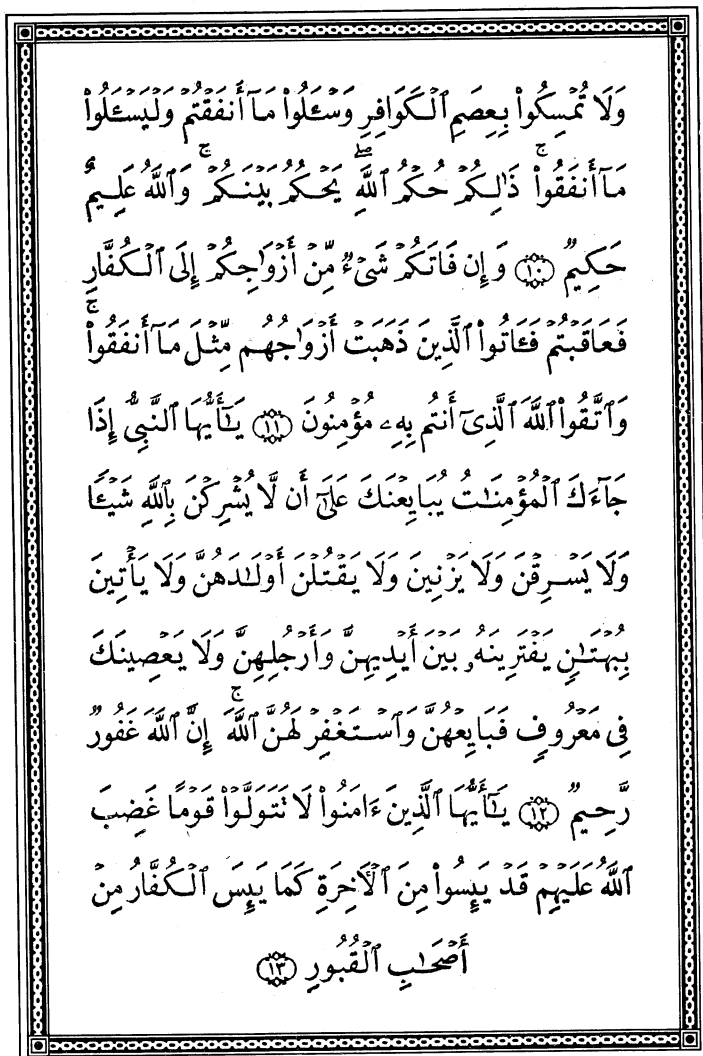 وَلَا تُمْسِكُوا۟ بِعِصَمِ ٱلْكَوَافِرِ وَسْـَٔلُوا۟ مَآ أَنفَقْتُمْ وَلْيَسْـَٔلُوا۟
مَآ أَنفَقُوا۟ ۚ ذَٰلِكُمْ حُكْمُ ٱللَّهِ ۖ يَحْكُمُ بَيْنَكُمْ ۚ وَٱللَّهُ عَلِيمٌ
حَكِيمٌ ١٠ وَإِن فَاتَكُمْ شَىْءٌ مِّنْ أَزْوَٰجِكُمْ إِلَى ٱلْكُفَّارِ
فَعَاقَبْتُمْ فَـَٔاتُوا۟ ٱلَّذِينَ ذَهَبَتْ أَزْوَٰجُهُم مِّثْلَ مَآ أَنفَقُوا۟ ۚ
وَٱتَّقُوا۟ ٱللَّهَ ٱلَّذِىٓ أَنتُم بِهِۦ مُؤْمِنُونَ ١١ يَـٰٓأَيُّهَا ٱلنَّبِىُّ إِذَا
جَآءَكَ ٱلْمُؤْمِنَـٰتُ يُبَايِعْنَكَ عَلَىٰٓ أَن لَّا يُشْرِكْنَ بِٱللَّهِ شَيْـًٔا
وَلَا يَسْرِقْنَ وَلَا يَزْنِينَ وَلَا يَقْتُلْنَ أَوْلَـٰدَهُنَّ وَلَا يَأْتِينَ
بِبُهْتَـٰنٍ يَفْتَرِينَهُۥ بَيْنَ أَيْدِيهِنَّ وَأَرْجُلِهِنَّ وَلَا يَعْصِينَكَ
فِى مَعْرُوفٍ فَبَايِعْهُنَّ وَٱسْتَغْفِرْ لَهُنَّ ٱللَّهَ ۚ إِنَّ ٱللَّهَ غَفُورٌ
رَّحِيمٌ ١٢ يَـٰٓأَيُّهَا ٱلَّذِينَ ءَامَنُوا۟ لَا تَتَوَلَّوْا۟ قَوْمًا غَضِبَ
ٱللَّهُ عَلَيْهِمْ قَدْ يَئِسُوا۟ مِنَ ٱلْـَٔاخِرَةِ كَمَا يَئِسَ ٱلْكُفَّارُ مِنْ
أَصْحَـٰبِ ٱلْقُبُورِ ١٣